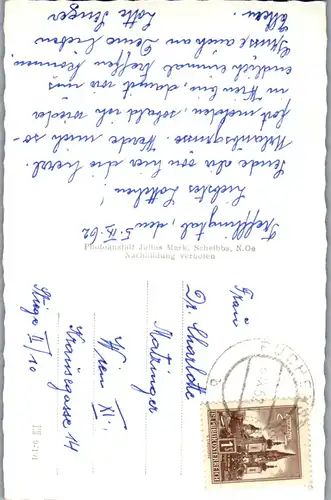 Trefflingtal, den 5.IX.62
Liebstes Lottchen!
Sende dir von hier die herzl.
Urlaubsgrüsse. Werde mich so-
fort melden, sobald ich wieder
in Wien bin, damit wir uns
endlich einmal treffen können.
Grüsse auch an Deine lieben
Eltern.
Lotte
Photoanstalt Julius Mark, Scheibbs, N.Oe
Nachbildung verboten
Frau
Dr. Charlotte
Matzinger
Wien XI.,
Krausegasse 14
Stiege II/10
REPUBLIK ÖSTERREICH